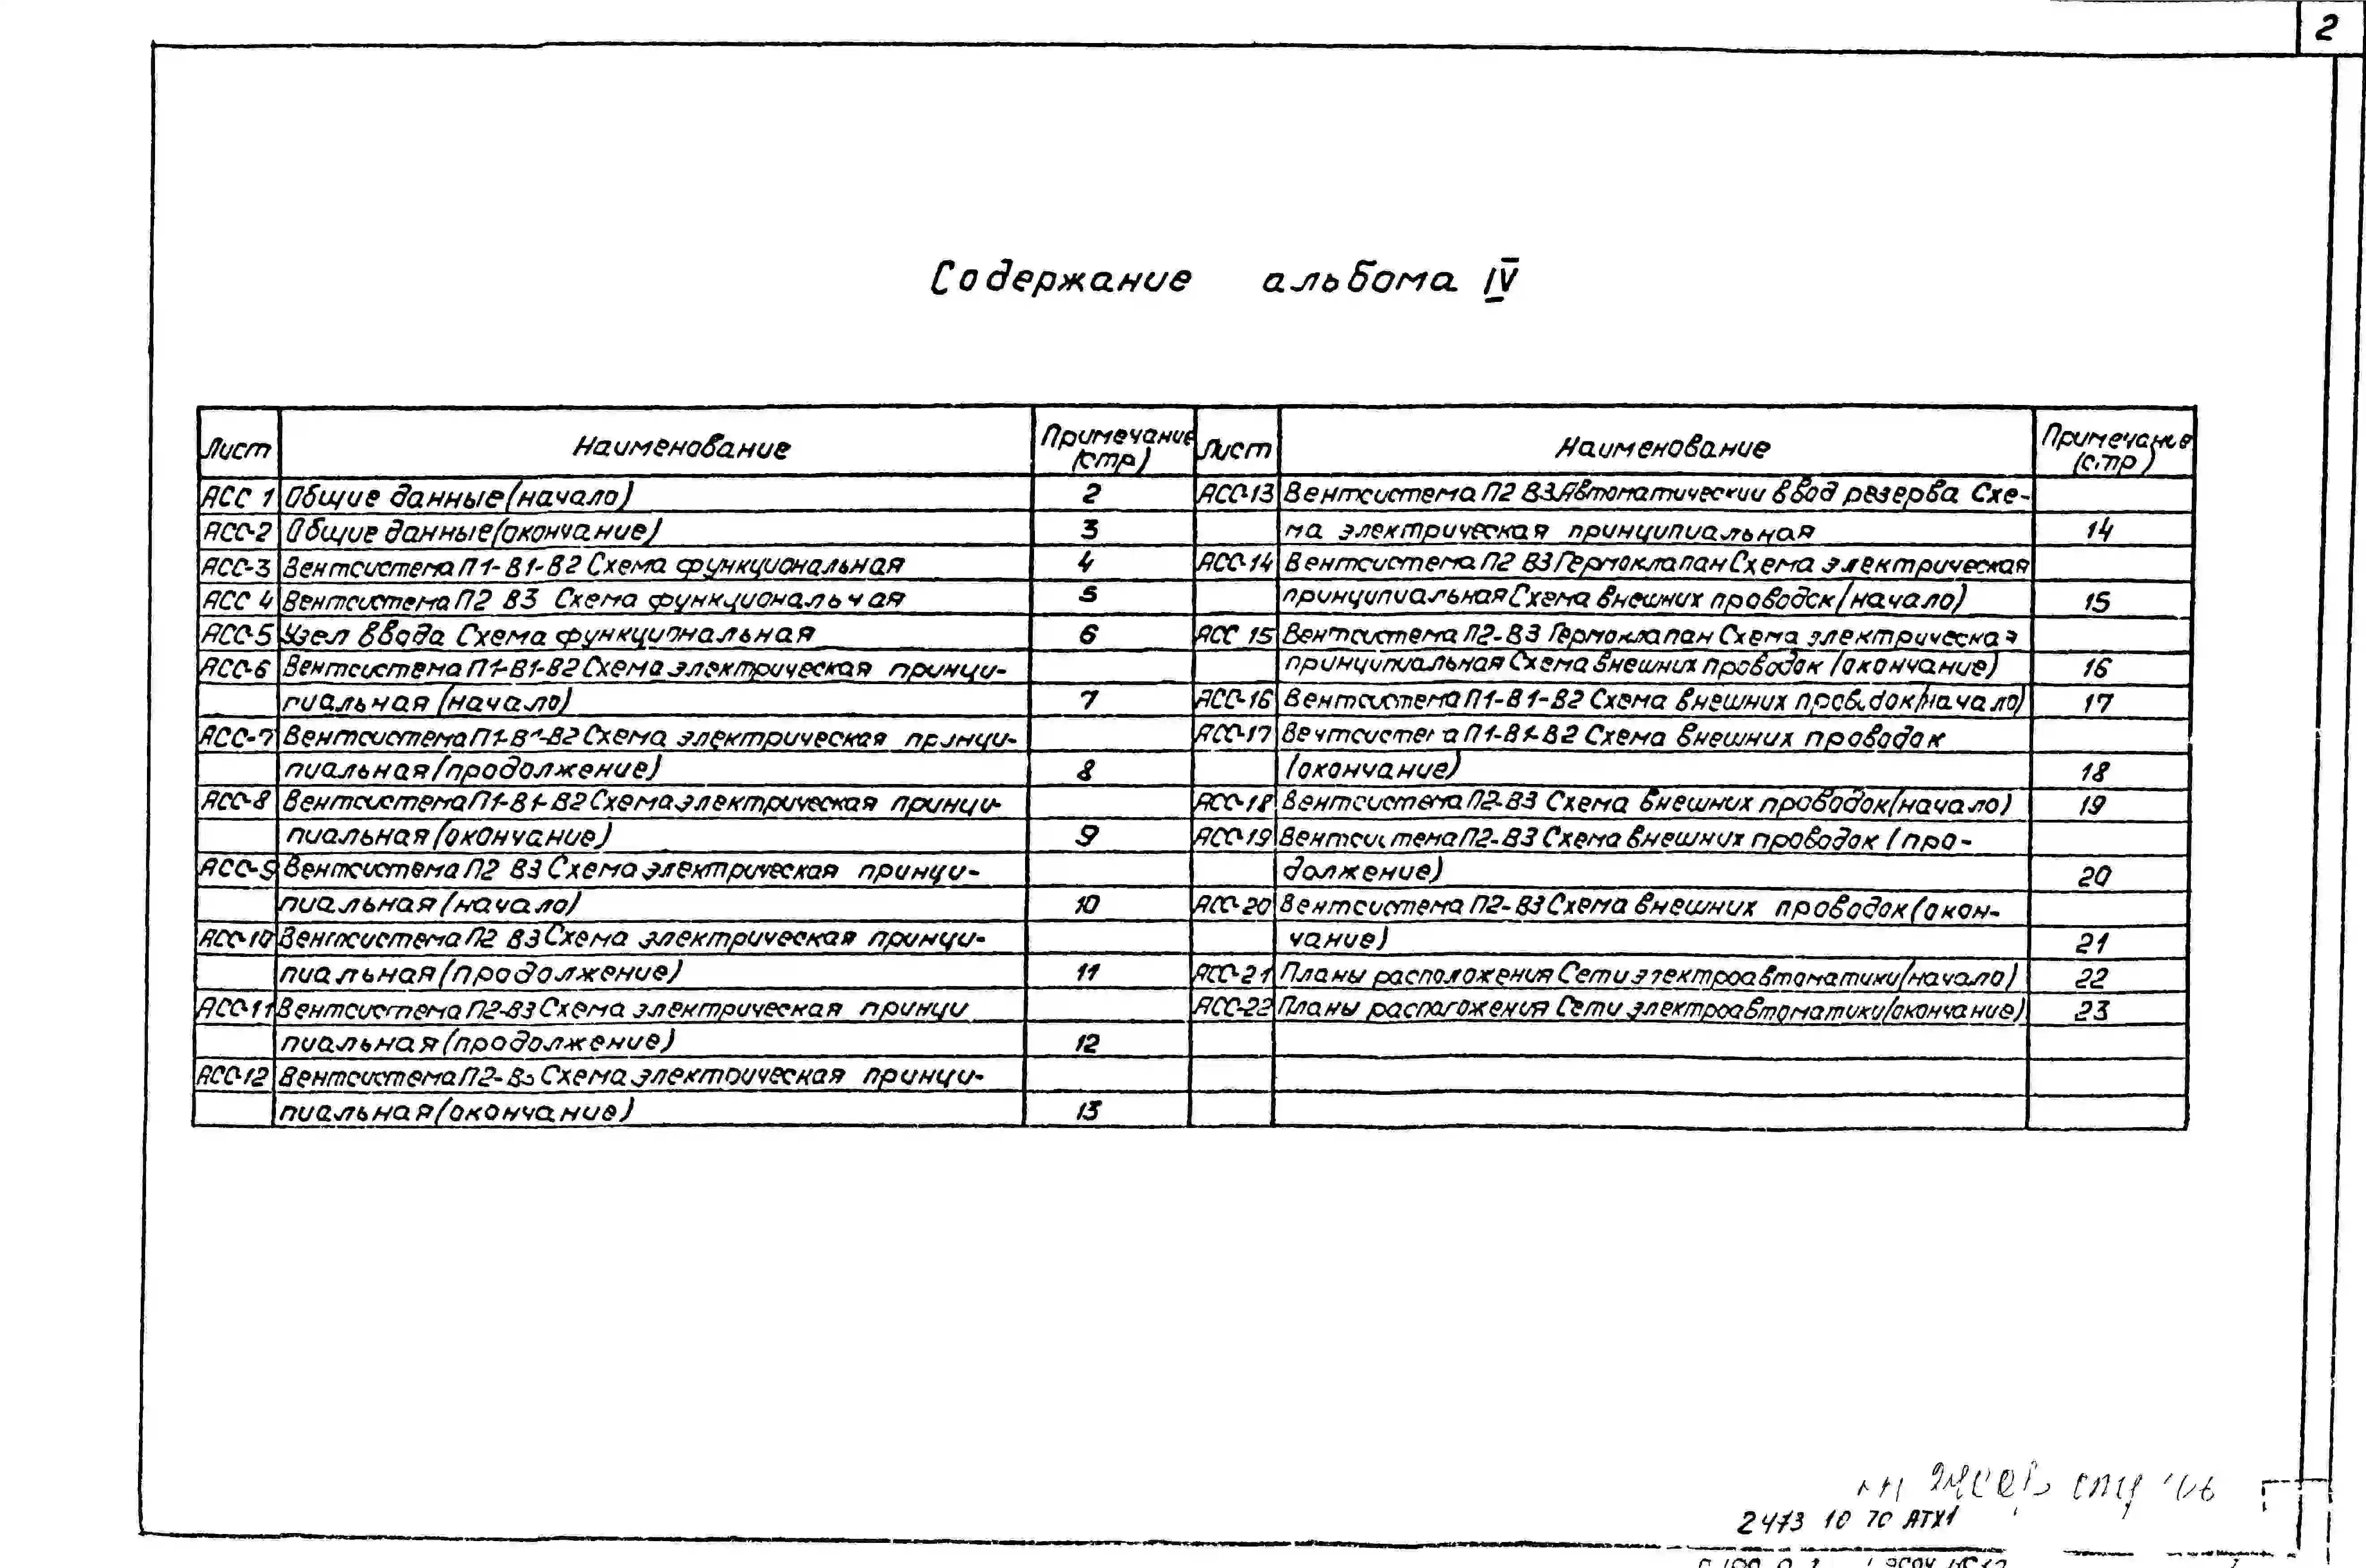 2
Содержание альбома IV
Лист Наименование Примечание (стр)
АСС 1 Общие данные (начало) 2
АСС-2 Общие данные (окончание) 3
АСС-3 Вентсистема П1-В1-В2 Схема функциональная 4
АСС 4 Вентсистема П2 В3 Схема функциональная 5
АСС-5 Узел ввода Схема функциональная 6
АСС-6 Вентсистема П1-В1-В2 Схема электрическая принци-
пиальная (начало) 7
АСС-7 Вентсистема П1-В1-В2 Схема электрическая принци-
пиальная (продолжение) 8
АСС-8 Вентсистема П1-В1-В2 Схема электрическая принци-
пиальная (окончание) 9
АСС-9 Вентсистема П2 В3 Схема электрическая принци-
пиальная (начало) 10
АСС-10 Вентсистема П2 В3 Схема электрическая принци-
пиальная (продолжение) 11
АСС-11 Вентсистема П2-В3 Схема электрическая принци
пиальная (продолжение) 12
АСС-12 Вентсистема П2-В3 Схема электрическая принци-
пиальная (окончание) 13
Лист Наименование Примечание (стр)
АСС-13 Вентсистема П2 В3 Автоматический ввод резерва Схе-
ма электрическая принципиальная 14
АСС-14 Вентсистема П2 В3 Гермоклапан Схема электрическая
принципиальная Схема внешних проводок (начало) 15
АСС 15 Вентсистема П2-В3 Гермоклапан Схема электрическая
принципиальная Схема внешних проводок (окончание) 16
АСС-16 Вентсистема П1-В1-В2 Схема внешних проводок (начало) 17
АСС-17 Вентсистема П1-В1-В2 Схема внешних проводок
(окончание) 18
АСС-18 Вентсистема П2-В3 Схема внешних проводок (начало) 19
АСС-19 Вентсистема П2-В3 Схема внешних проводок (про-
должение) 20
АСС-20 Вентсистема П2-В3 Схема внешних проводок (окон-
чание) 21
АСС-21 Планы расположения Сети электроавтоматики (начало) 22
АСС-22 Планы расположения Сети электроавтоматики (окончание) 23
2473 10 70 АТХ1